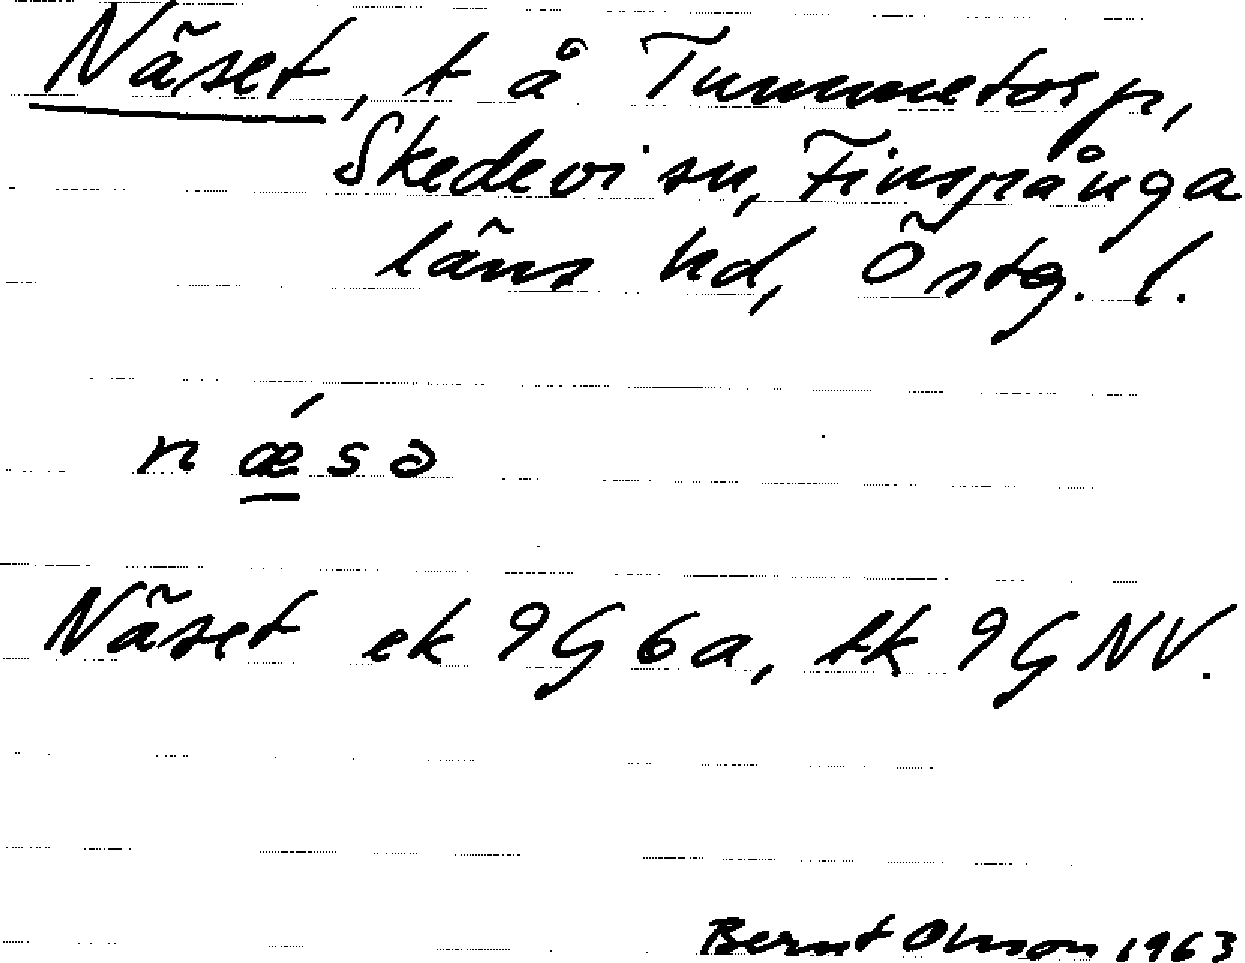 Näset, t å Tummetorp,
Skedevi sn, Finspånga
läns hd, Östg. l.
nǽsə
Näset ek 9G6a, tk 9GNV.
Bernt Olsson 1963